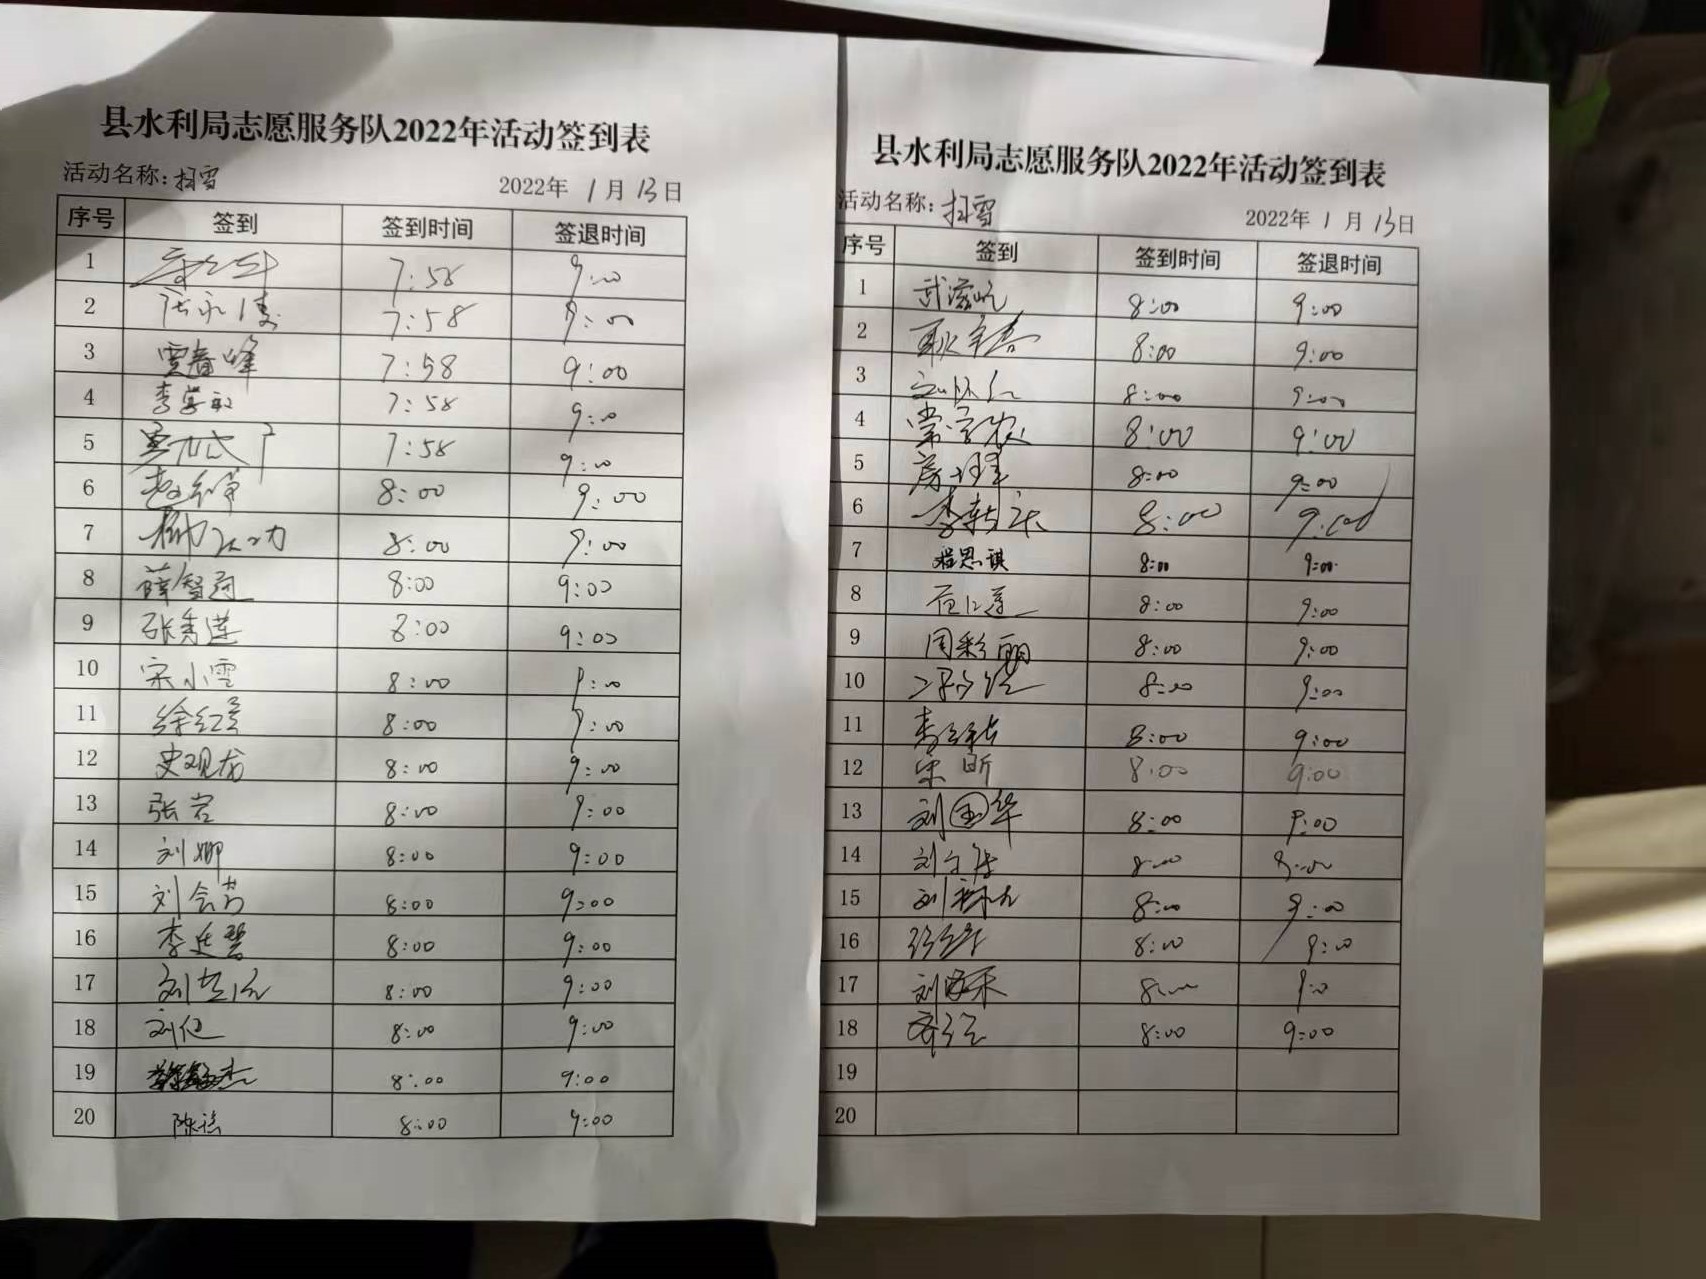 县水利局志愿服务队2022年活动签到表
活动名称:扫雪 2022年1月13日
序号 签到 签到时间 签退时间
1 7:58 9:00
2 张永 7:58 9:00
3 贾春峰 7:58 9:00
4 李 7:58 9:00
5 7:58 9:00
6 赵 8:00 9:00
7 8:00 9:00
8 薛智 8:00 9:00
9 张秀莲 8:00 9:00
10 宋小雪 8:00 9:00
11 徐红 8:00 9:00
12 史观龙 8:00 9:00
13 张岩 8:00 9:00
14 刘娜 8:00 9:00
15 刘会芳 8:00 9:00
16 李廷 8:00 9:00
17 刘 8:00 9:00
18 刘 8:00 9:00
19 杰 8:00 9:00
20 陈 8:00 9:00
县水利局志愿服务队2022年活动签到表
活动名称:扫雪 2022年1月13日
序号 签到 签到时间 签退时间
1 武 8:00 9:00
2 耿 8:00 9:00
3 8:00 9:00
4 常 8:00 9:00
5 8:00 9:00
6 李 8:00 9:00
7 程思琪 8:00 9:00
8 8:00 9:00
9 周彩丽 8:00 9:00
10 8:00 9:00
11 李 8:00 9:00
12 宋昕 8:00 9:00
13 刘国华 8:00 9:00
14 刘 8:00 9:00
15 刘 8:00 9:00
16 8:00 9:00
17 刘 8:00 9:00
18 8:00 9:00
19
20